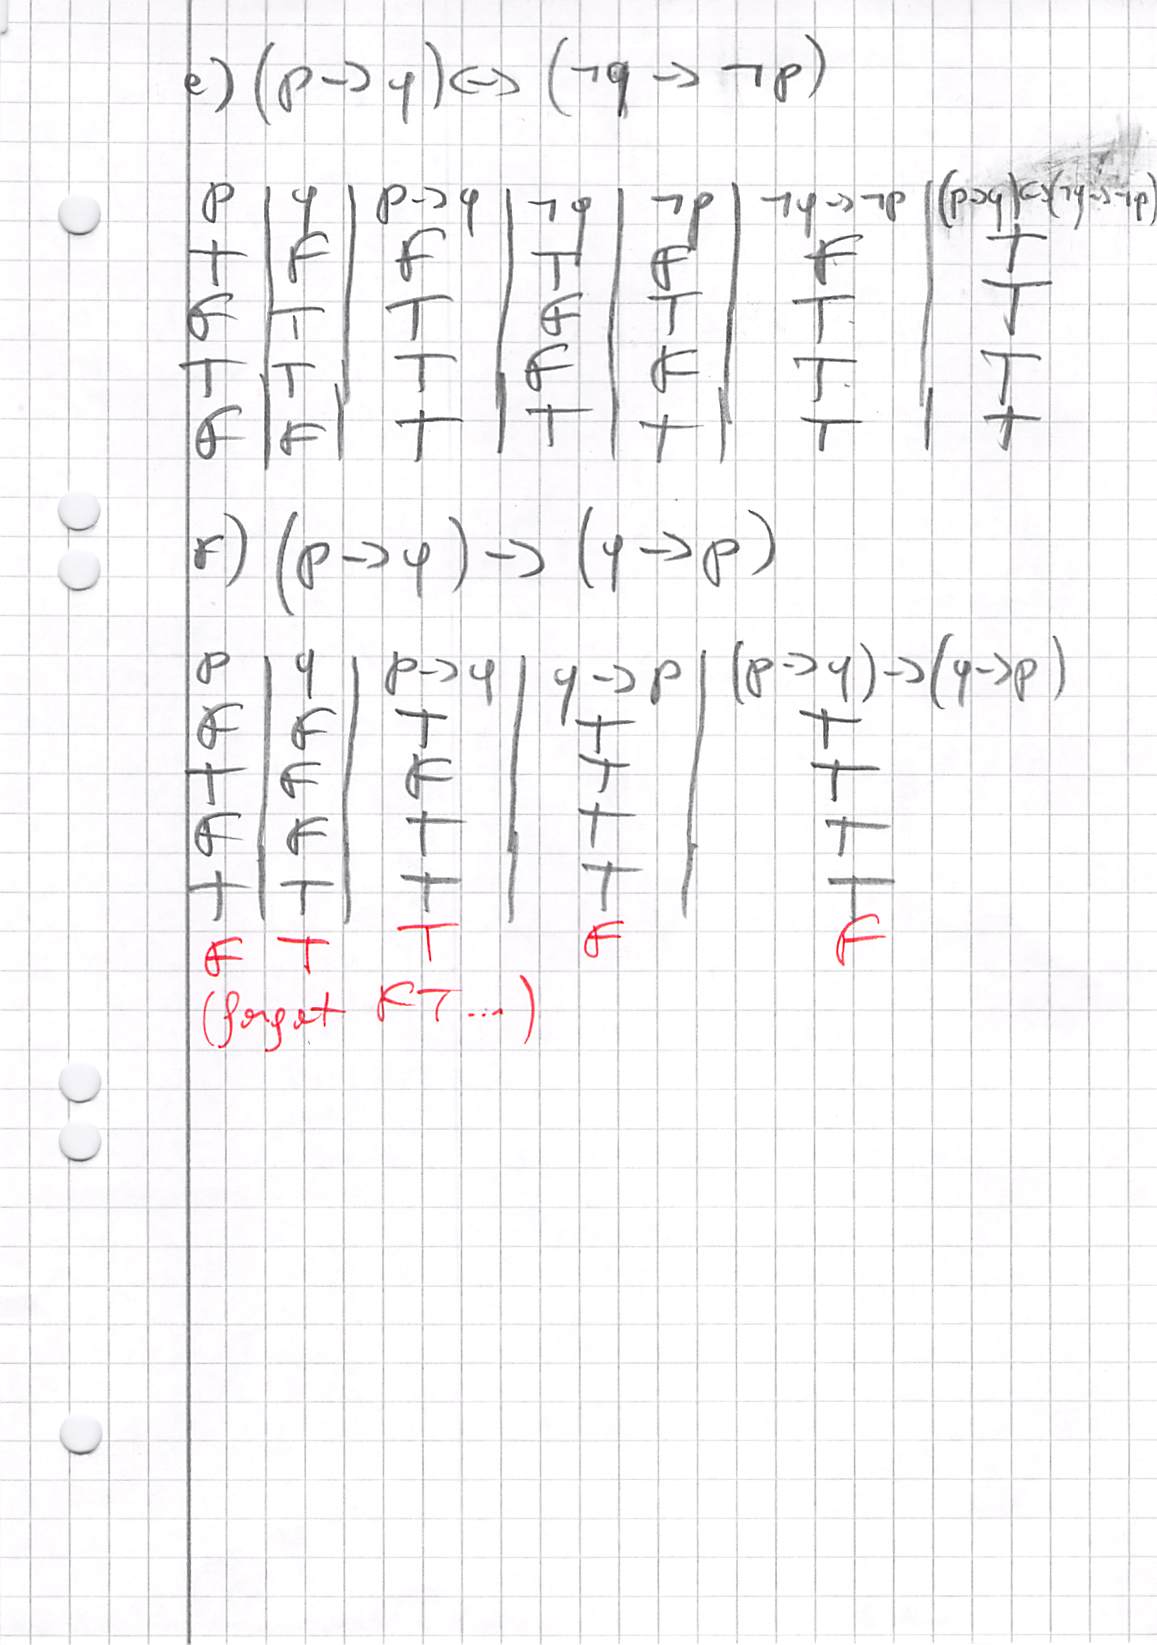 e) (p → q) ↔ (¬q → ¬p)
p | q | p → q | ¬q | ¬p | ¬q → ¬p | (p → q) ↔ (¬q → ¬p)
T F F T F F T
F T T F T T T
T T T F F T T
F F T T T T T
f) (p → q) → (q → p)
p | q | p → q | q → p | (p → q) → (q → p)
F F T T T
T F F T T
F F T T T
T T T T T
F T T F F
(forgot FT ...)